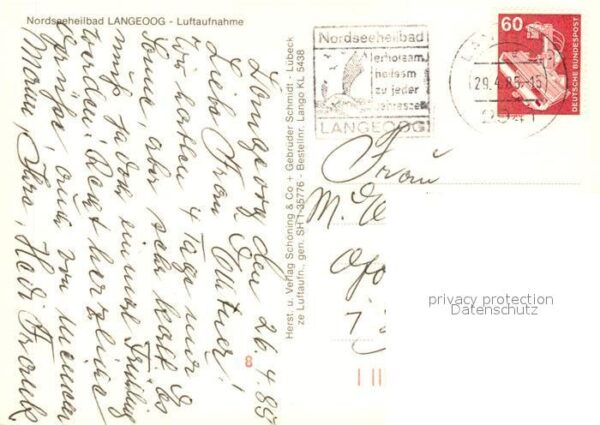 Nordseeheilbad LANGEOOG - Luftaufnahme
Langeoog den 26.4.85
Liebe Frau
Wir haben 4 Tage nur
Sonne aber sehr kalt es
muß ja doch einmal Frühling
werden! Recht herzliche
Grüße, auch von meinem
Mann, Ihre, Hedi
Herst. u. Verlag Schöning & Co + Gebrüder Schmidt - Lübeck
ze Luftaufn., gen. SH 1-35776 - Bestellnr. Lango KL 5438
8
Nordseeheilbad
erholsam,
heilsam
zu jeder
Jahreszeit
LANGEOOG
29.4.85-15
2941
60
DEUTSCHE BUNDESPOST
Frau
M.
7
privacy protection
Datenschutz